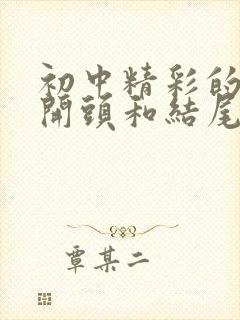 初中精彩的
開頭和結尾
覃某二